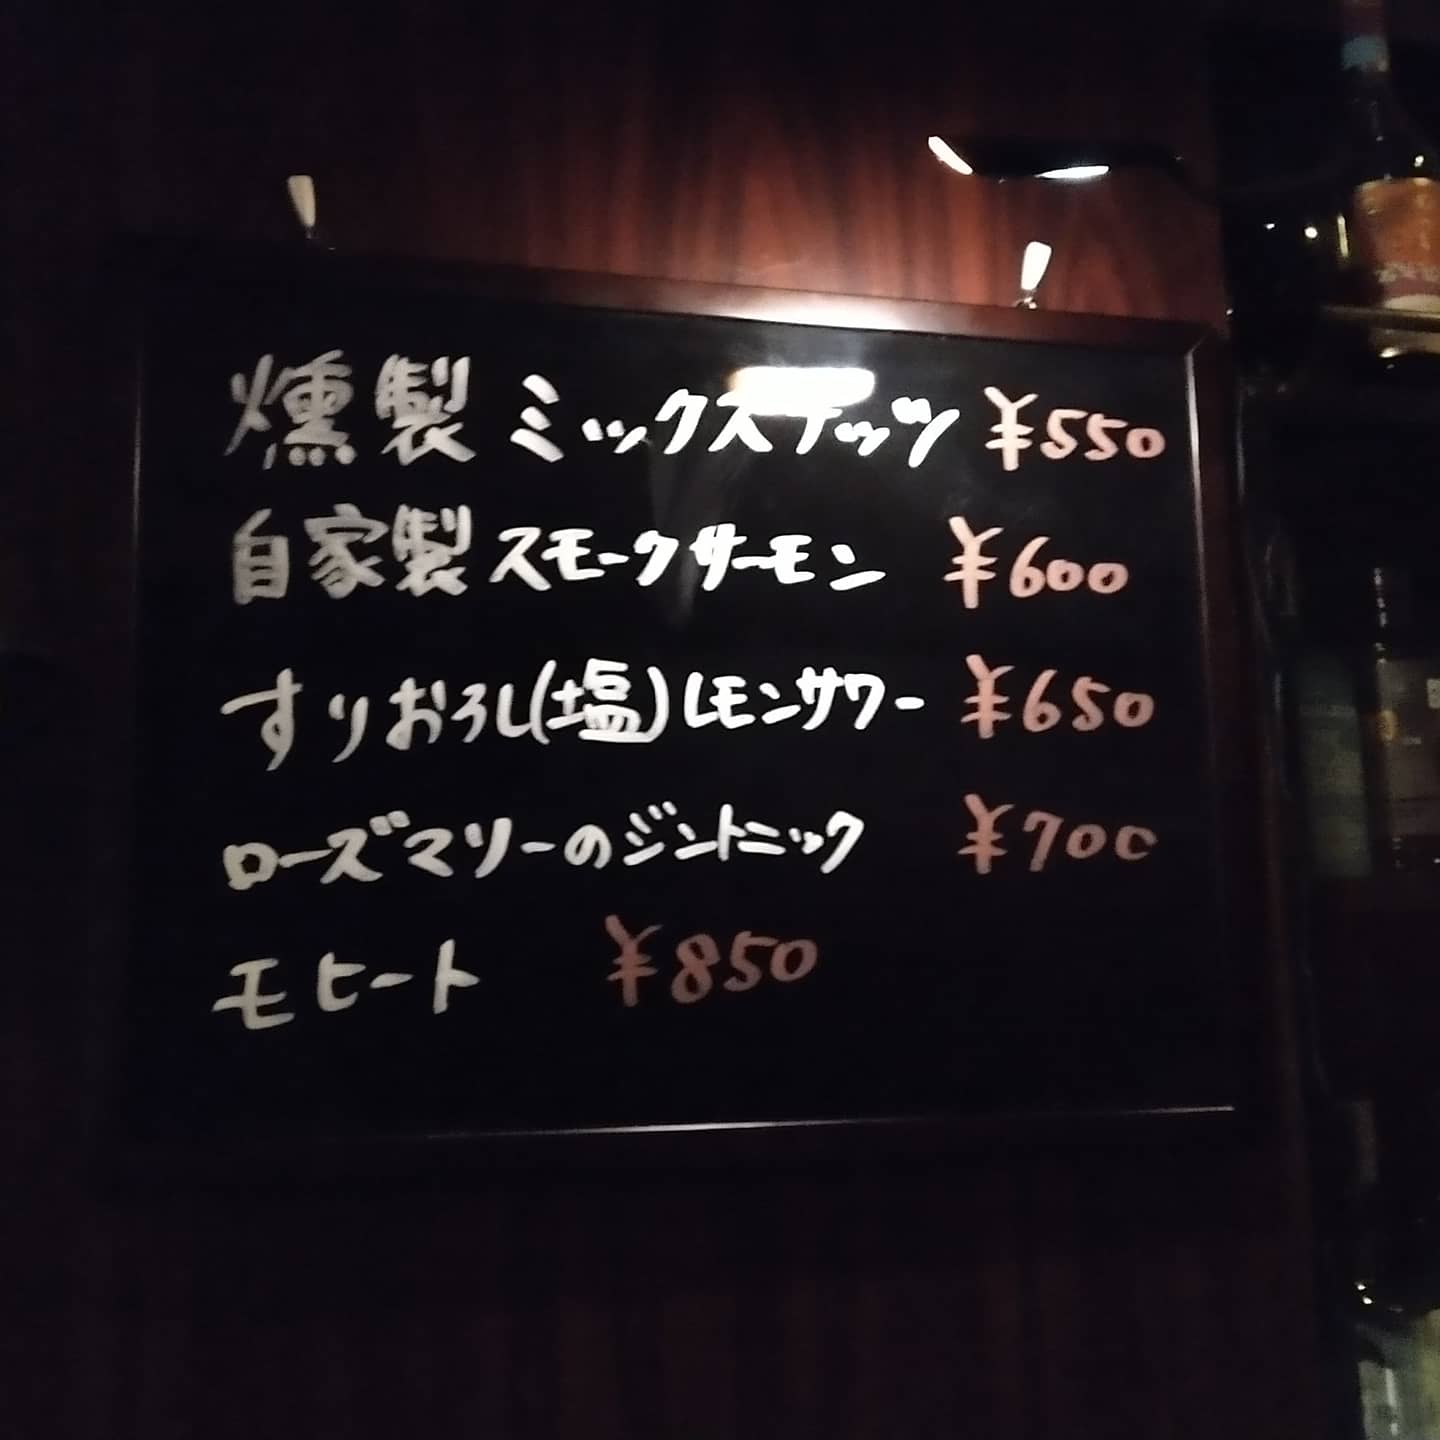 燻製ミックスナッツ ¥550
自家製スモークサーモン ¥600
すりおろし(塩)レモンサワー ¥650
ローズマリーのジントニック ¥700
モヒート ¥850